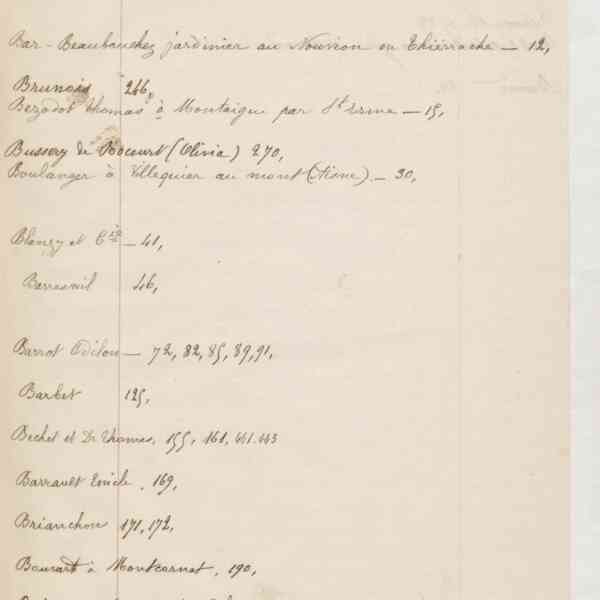 Bar-Beaubouchez jardinier au Nouvion en Thiérrache — 12,
Brunois 266,
Bezodot Thomas à Montaigu par St Erme — 15,
Bussery de Rocourt (Olivia) 270,
Boulanger à Villequier au mont (Aisne) — 30,
Blanzy et Cie — 41,
Barresnil 46,
Barrot Odilon — 72, 82, 85, 89, 91,
Barbet 125,
Bechet et De Thomas, 155, 161, 441.443
Barrault Emile, 169,
Brianchon 171, 172,
à Montcornet, 190,